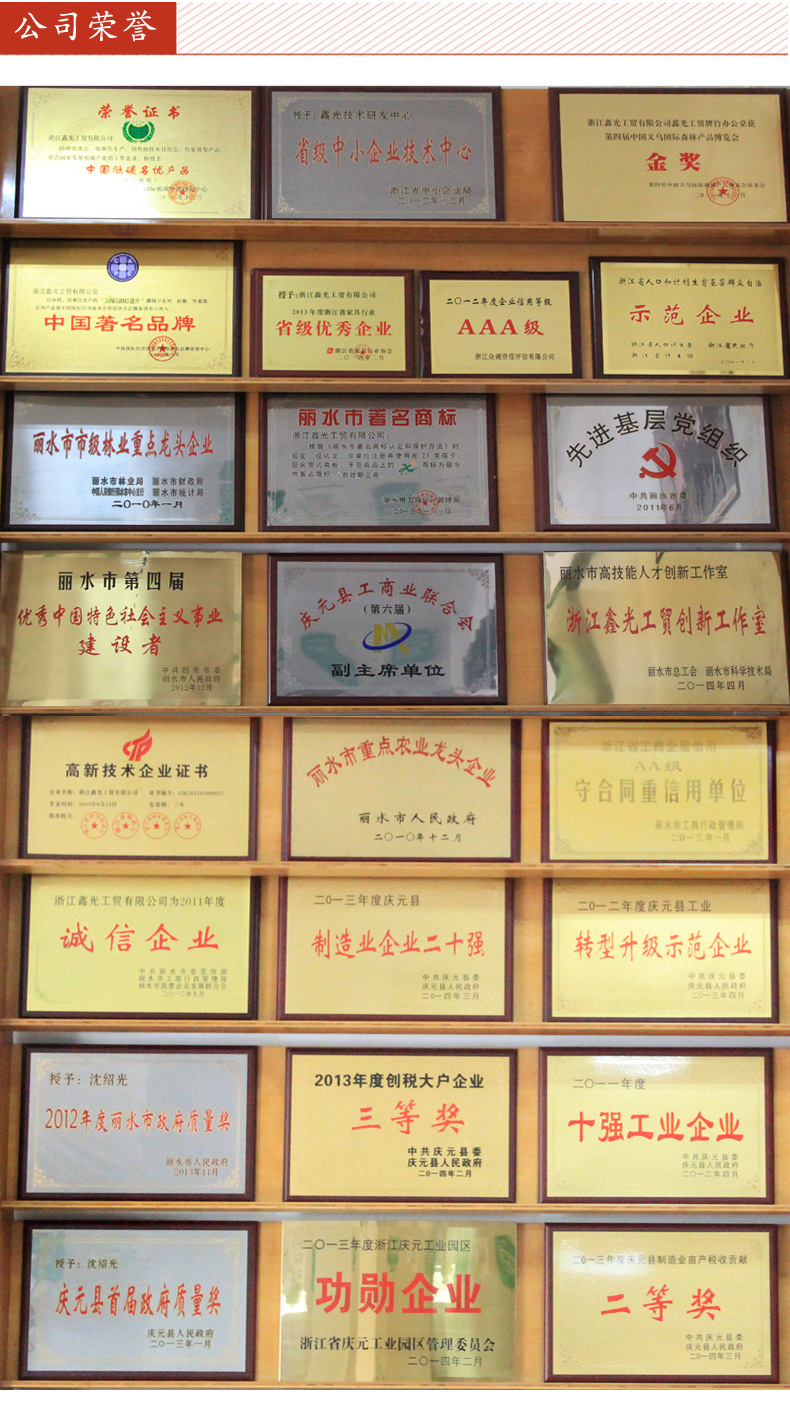 公司荣誉
荣誉证书
浙江鑫光工贸有限公司:
中国低碳名优产品
授予:鑫光技术研发中心
省级中小企业技术中心
浙江省中小企业局
二〇一二年十二月
浙江鑫光工贸有限公司鑫光工贸牌竹办公桌获
第四届中国义乌国际森林产品博览会
金奖
浙江鑫光工贸有限公司
中国著名品牌
授予:浙江鑫光工贸有限公司
2013年度浙江省家具行业
省级优秀企业
浙江省家具行业协会
二〇一四年二月
二〇一二年度企业信用等级
AAA级
浙江众诚资信评估有限公司
浙江省人口和计划生育基层群众自治
示范企业
浙江省人口计生委 浙江省民政厅
浙江省计生协
丽水市市级林业重点龙头企业
丽水市林业局 丽水市财政局
中国人民银行丽水市中心支行 丽水市统计局
二〇一〇年一月
丽水市著名商标
浙江鑫光工贸有限公司:
根据《丽水市著名商标认定和保护办法》的
规定,经认定,你单位注册并使用在21类筷子;
厨房用切菜板;牙签商品上的 商标为丽水
市著名商标。有效期三年。
先进基层党组织
中共丽水市委
2011年6月
丽水市第四届
优秀中国特色社会主义事业
建设者
中共丽水市委
丽水市人民政府
2012年12月
庆元县工商业联合会
(第六届)
副主席单位
丽水市高技能人才创新工作室
浙江鑫光工贸创新工作室
丽水市总工会 丽水市科学技术局
二〇一四年四月
高新技术企业证书
企业名称:浙江鑫光工贸有限公司
有效期:三年
批准机关:
丽水市重点农业龙头企业
丽水市人民政府
二〇一〇年十二月
浙江省工商企业信用
AA级
守合同重信用单位
丽水市工商行政管理局
二〇一三年一月
浙江鑫光工贸有限公司为2011年度
诚信企业
中共丽水市委宣传部
丽水市工商行政管理局
丽水市民营企业发展联合会
二〇一二年九月
二〇一三年度庆元县
制造业企业二十强
中共庆元县委
庆元县人民政府
二〇一四年三月
二〇一二年度庆元县工业
转型升级示范企业
中共庆元县委
庆元县人民政府
二〇一三年四月
授予:沈绍光
2012年度丽水市政府质量奖
丽水市人民政府
2013年11月
2013年度创税大户企业
三等奖
中共庆元县委
庆元县人民政府
二〇一四年二月
二〇一一年度
十强工业企业
中共庆元县委
庆元县人民政府
二〇一二年四月
授予:沈绍光
庆元县首届政府质量奖
庆元县人民政府
二〇一三年一月
二〇一三年度浙江庆元工业园区
功勋企业
浙江省庆元工业园区管理委员会
二〇一四年二月
二〇一三年度庆元县制造业亩产税收贡献
二等奖
中共庆元县委
庆元县人民政府
二〇一四年三月